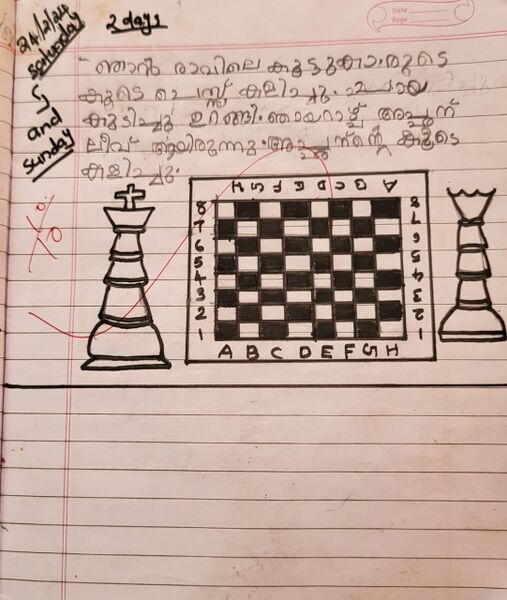 Date
Page
24/2/24
saturday
and
sunday
2 days
ഞാൻ രാവിലെ കൂട്ടുകാരുടെ
കൂടെ ചെസ്സ് കളിച്ചു. ചായ
കുടിച്ചു ഉറങ്ങി. ഞായറാഴ്ച അച്ഛന്
ലീവ് ആയിരുന്നു. അച്ഛന്റെ കൂടെ
കളിച്ചു.
H G F E D C B A
8 8
7 7
6 6
5 5
4 4
3 3
2 2
1 1
A B C D E F G H